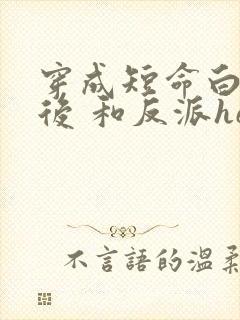 穿成短命白
後 和反派he
不言語的溫柔